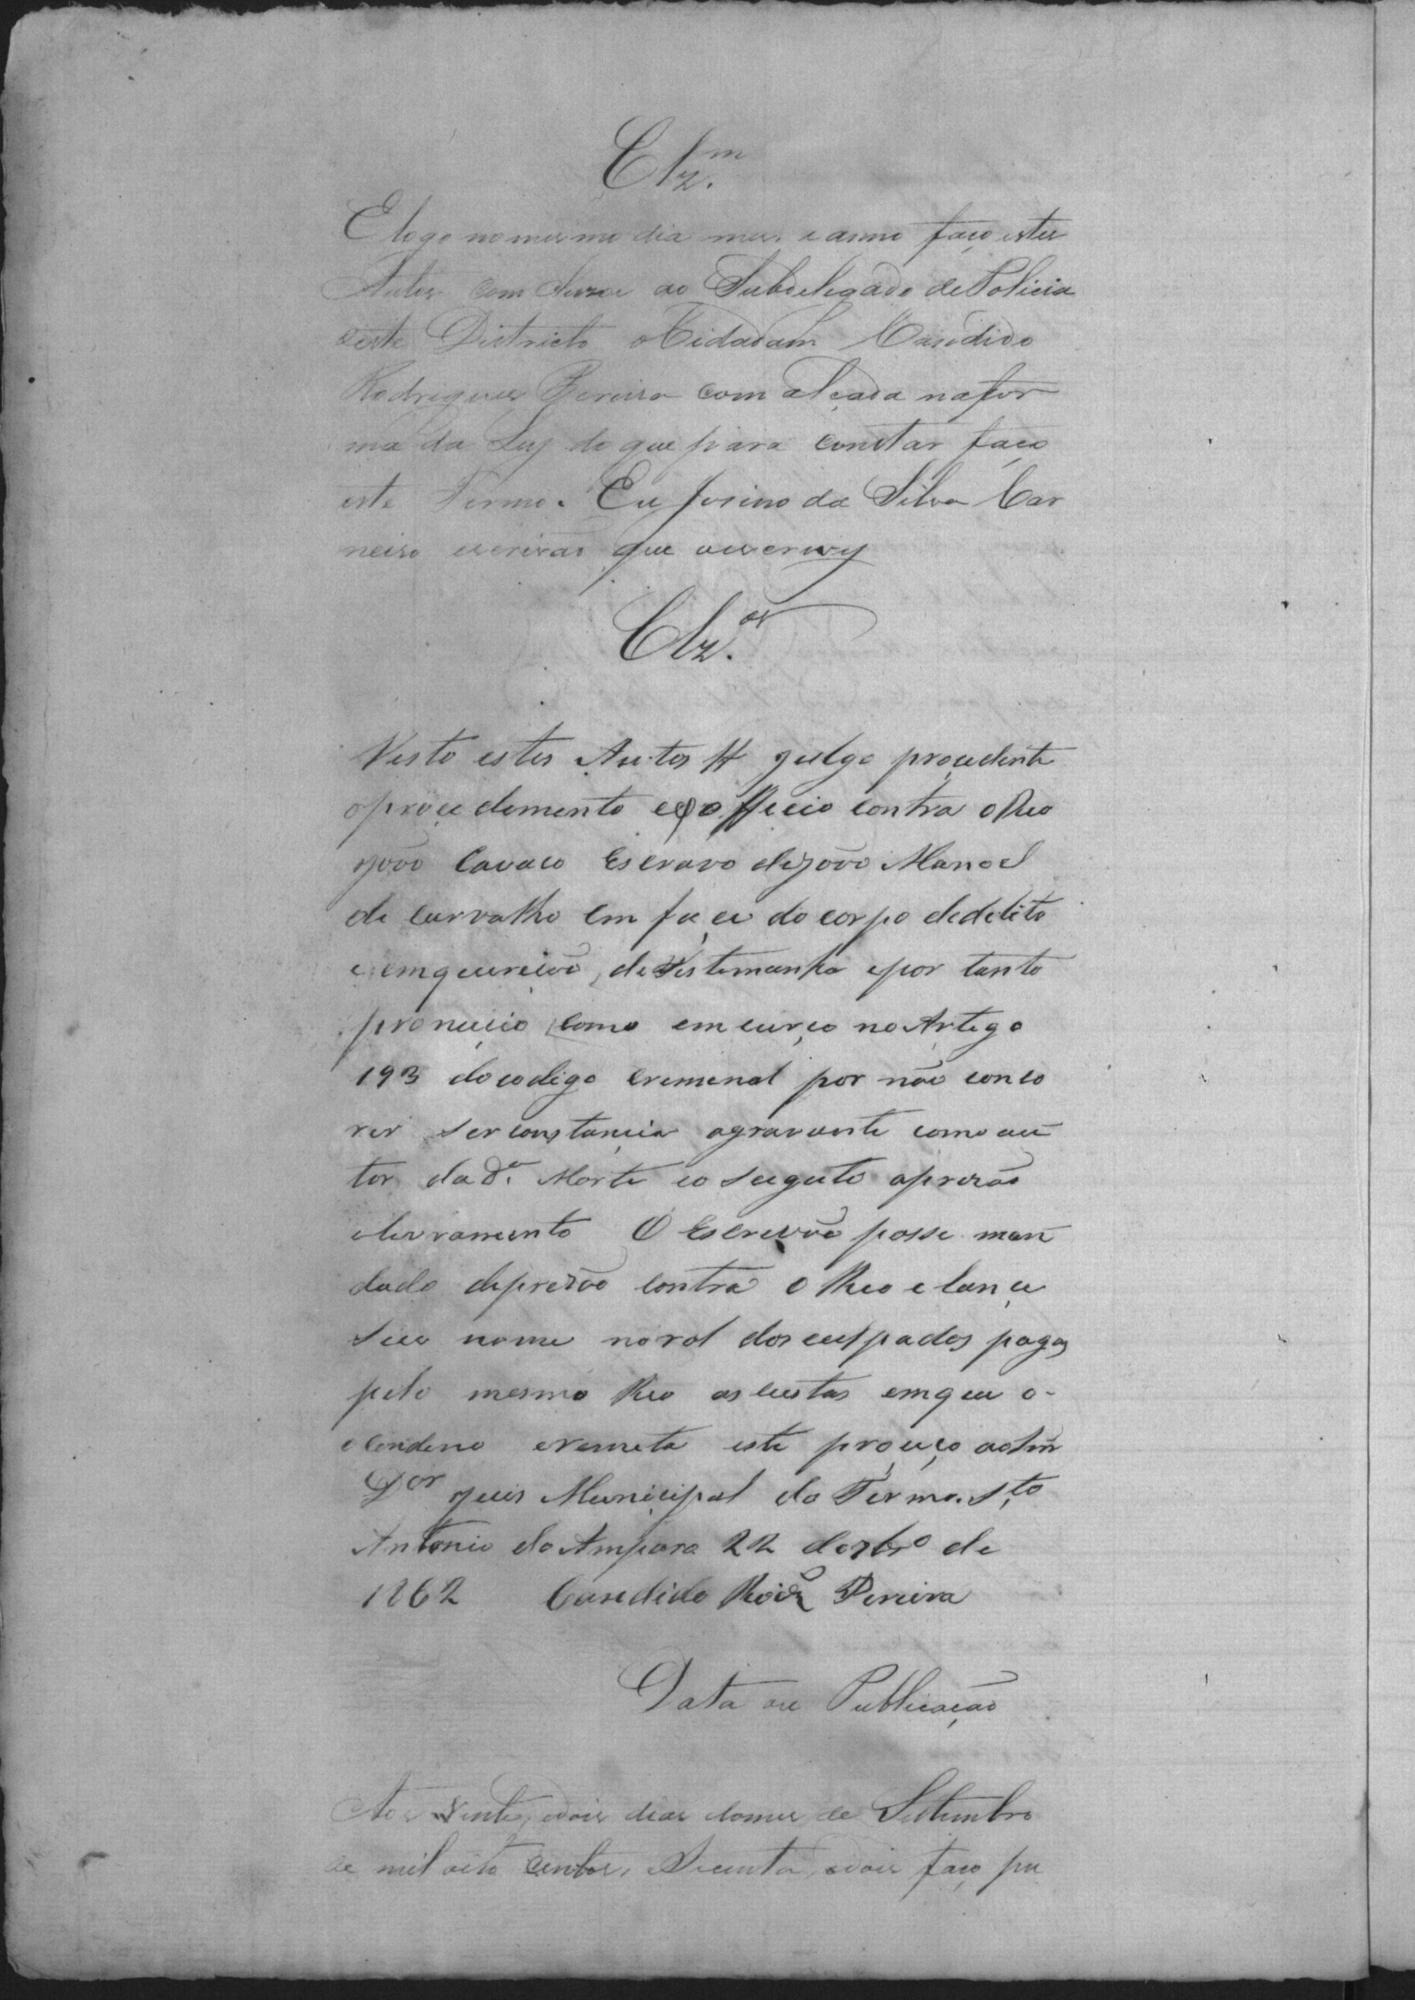 Clz.m
E logo no mesmo dia mes e anno faço estes
Autos concluzos ao Subdelegado de Policia
deste Districto o Cidadam Candido
Rodrigues Pereira com alçada na for
ma da Ley do que para constar faço
este Termo. Eu Jusino da Silva Car
neiro escrivão que o escrevy
Clz.os
Visto estes Autos & julgo procidente
o proçedimento exofficio contra o Reo
joão Cavaco Escravo de joão Manoel
de Carvalho em façe do corpo dedelito
e emquerição de Testemunha epor tanto
pronuçio como emcurço no Artigo
193 do codigo Creminal por não conco
rer serconstançia agravante como au
tor da d.a Morte eo sugeito aprezão
elivramento O Escrivão posse man
dado deprezão contra o Reo e lançe
seu nome norol dos culpados pagas
pelo mesmo Reo as custas emque o
condeno eremeta este proçeço ao Snr
Dor juis Municipal do Termo. Sto
Antonio do Amparo 22 de 7bro de
1862 Candido Roiz Pereira
Data ou Publicação
Aos vinte, edois dias domes de Setembro
de mil oito centos, Secenta, edois faço pu